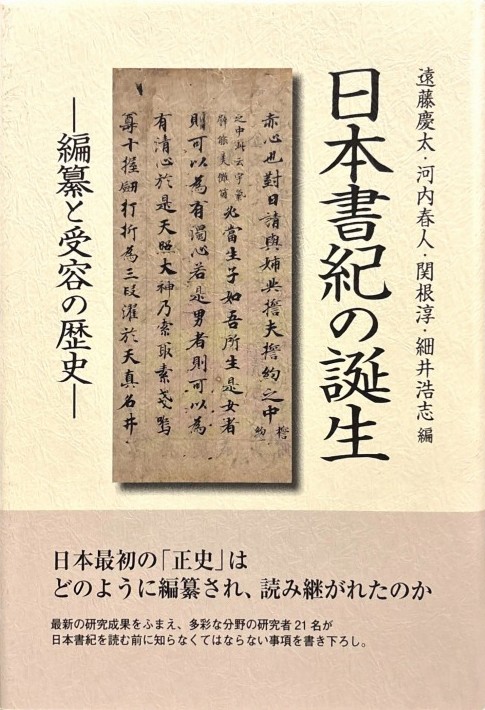 遠藤慶太・河内春人・関根淳・細井浩志 編
日本書紀の誕生
―編纂と受容の歴史―
赤心也對曰請與姉共誓夫誓約之中
之中此云宇氣
譬能美儺箇
必當生子如吾所生是女者
則可以為有濁心若是男者則可以為
有清心於是天照大神乃索取素戔嗚
尊十握劔打折為三段濯於天真名井
誓
約
日本最初の「正史」は
どのように編纂され、読み継がれたのか
最新の研究成果をふまえ、多彩な分野の研究者21名が
日本書紀を読む前に知らなくてはならない事項を書き下ろし。